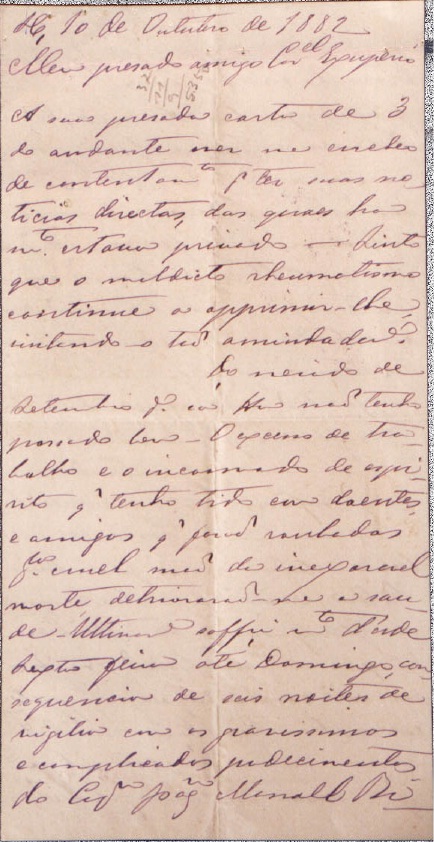 10 de Outubro de 1882
Meu presado amigo Cor.el Exuperio
A sua presada carta de 3
do andante veu me encher
de contentam.to p.r ter suas no-
ticias directas, das quaes ha
m.to estava privado — Sinto
que o maldicto rheumatismo
continue a opprimir-lhe,
visitando-o tão amiudadas
Do meiado de
Setembro p.a cá eu não tenho
passado bem — O excesso de tra-
balho e o incommodo de espi-
rito q' tenho tido com doentes
e amigos q' forão roubados
p.la cruel mão da inexoravel
morte, deteriorarão-me a sau-
de — Ultimam.te soffri m.to d'esde
Sexta feira até Domingo, con-
sequencia de seis noites de
vigilia com os gravissimos
e complicados padecimentos
do Cap.m João Manoel